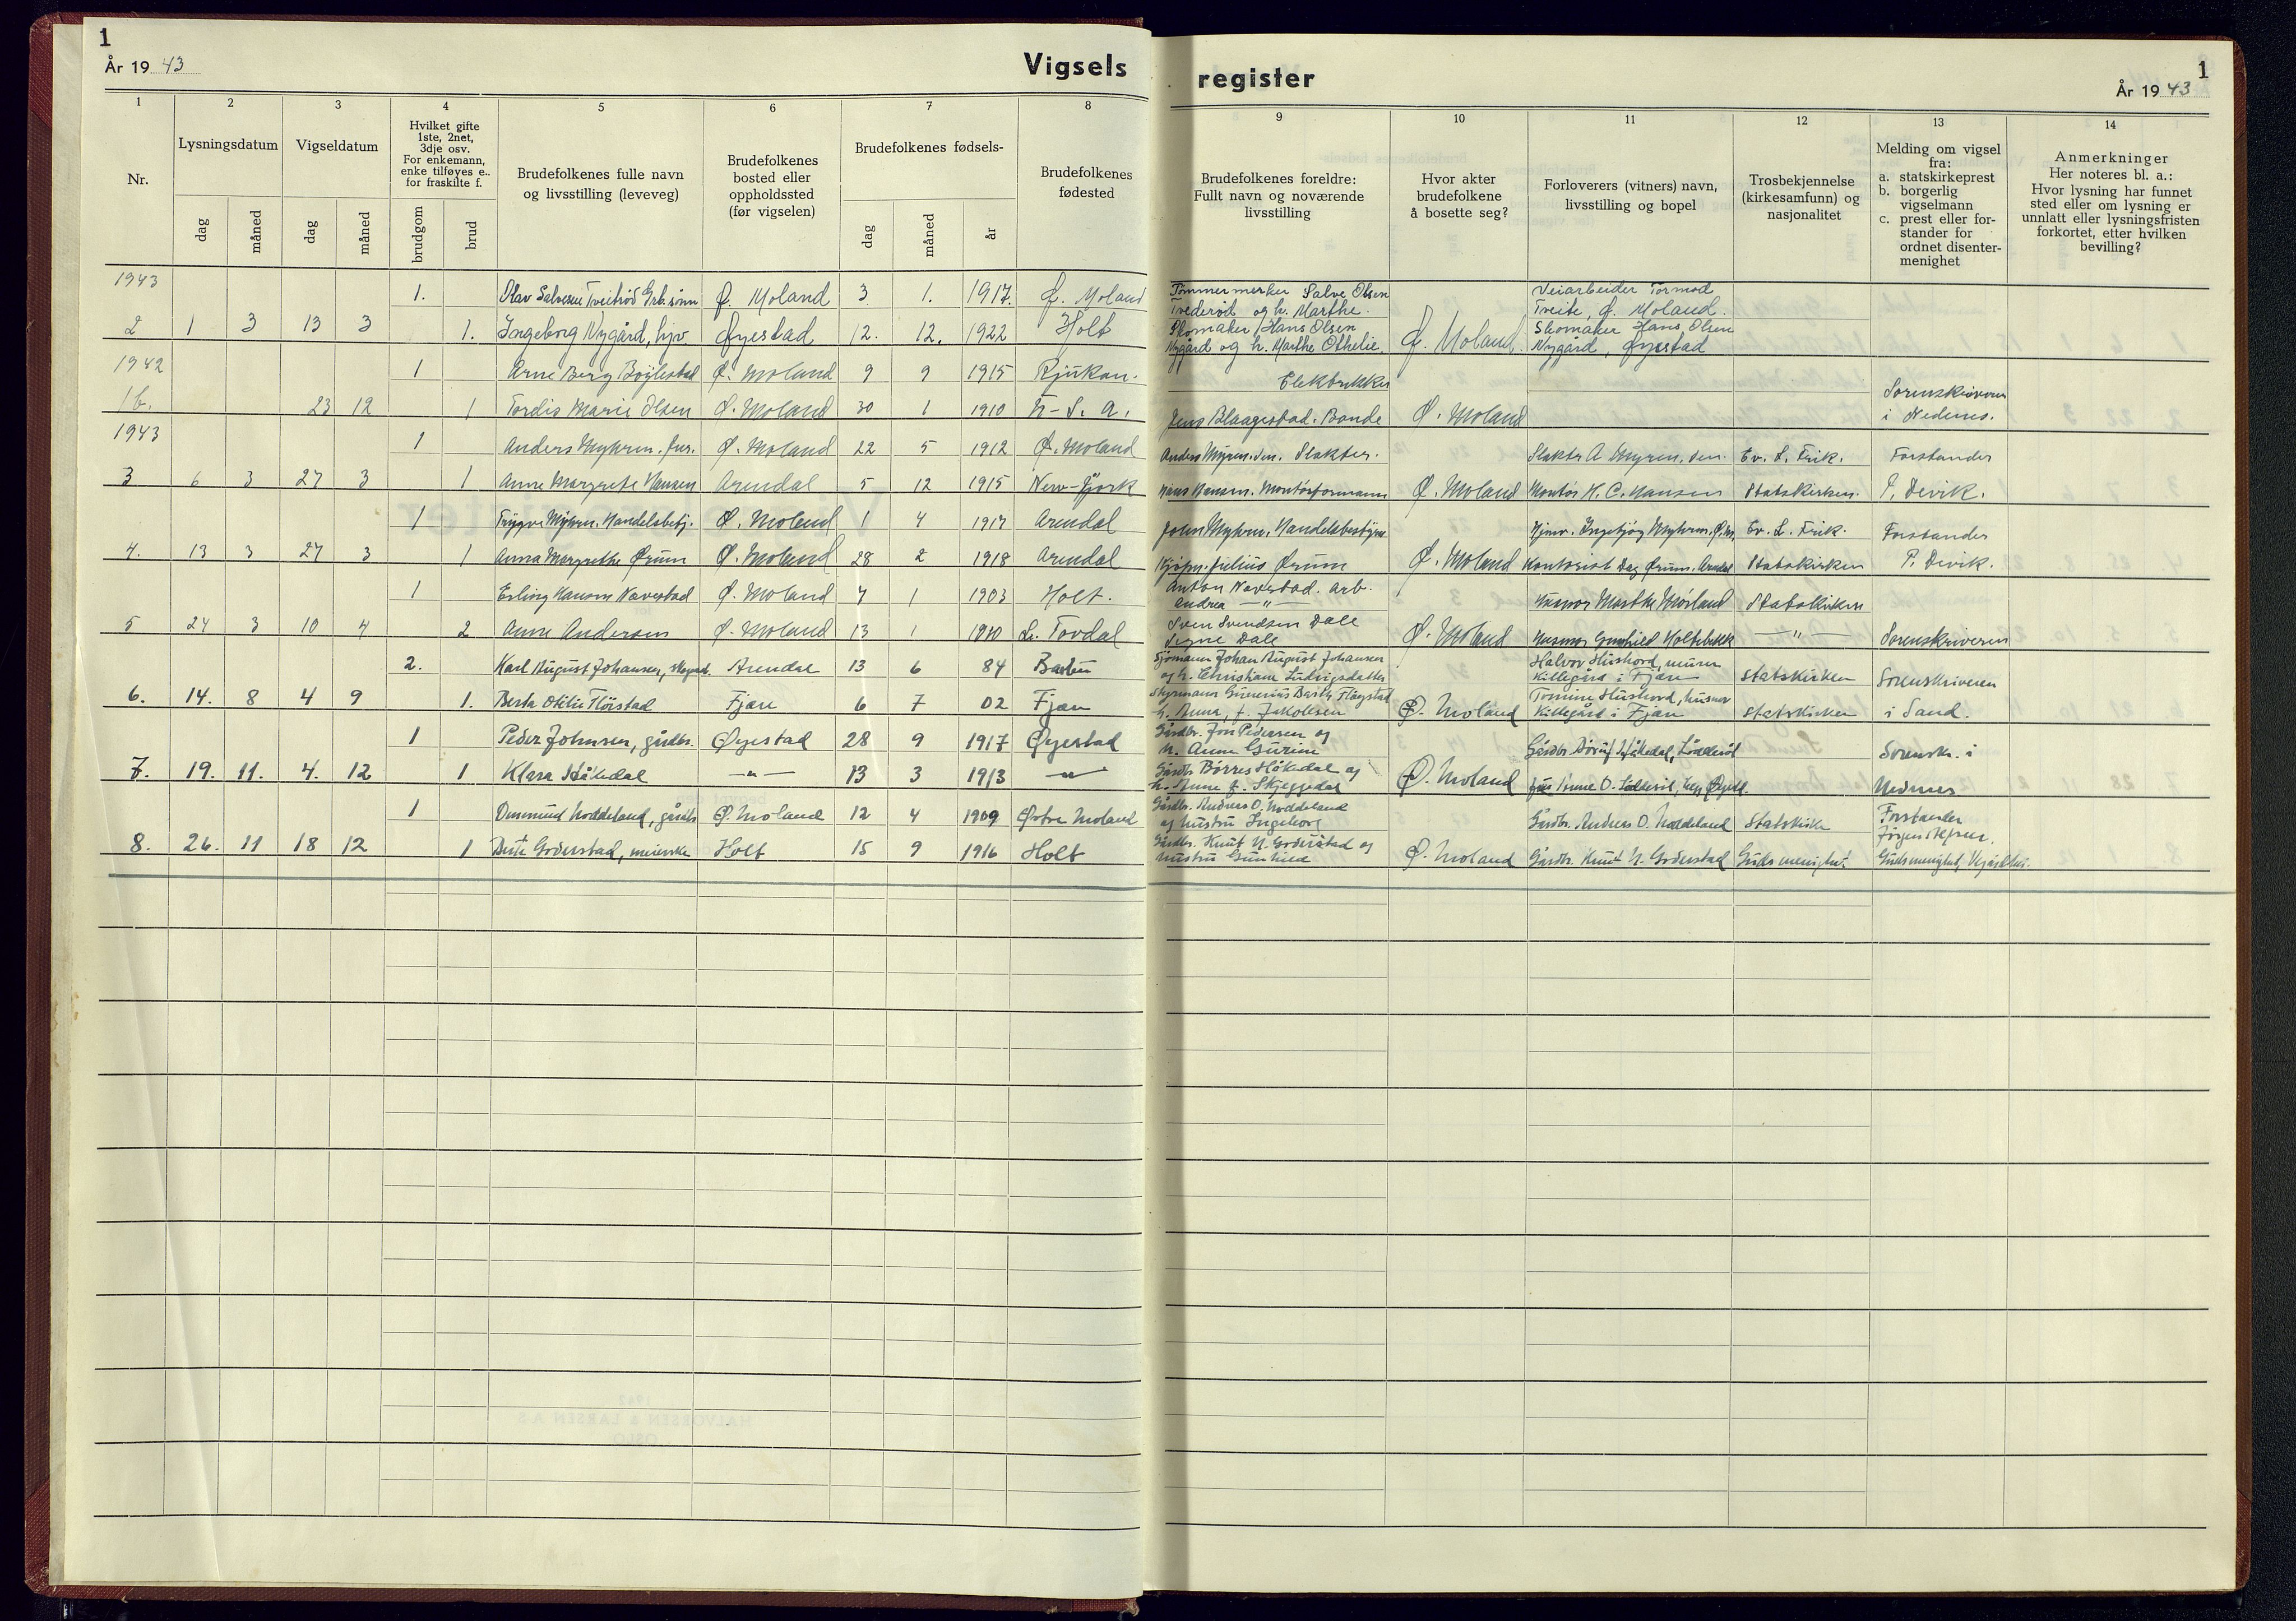 1
År 19 43
Vigsels
register
1
År 19 43
1 2 3 4 5 6 7 8
Nr.
Lysningsdatum
Vigseldatum
Hvilket gifte
1ste, 2net,
3dje osv.
For enkemann,
enke tilføyes e..
for fraskilte f.
Brudefolkenes fulle navn
og livsstilling (leveveg)
Brudefolkenes
bosted eller
oppholdssted
(før vigselen)
Brudefolkenes fødsels-
Brudefolkenes
fødested
dag måned dag måned brudgom brud dag måned år
9 10 11 12 13 14
Brudefolkenes foreldre:
Fullt navn og noværende
livsstilling
Hvor akter
brudefolkene
å bosette seg?
Forloverers (vitners) navn,
livsstilling og bopel
Trosbekjennelse
(kirkesamfunn) og
nasjonalitet
Melding om vigsel
fra:
a. statskirkeprest
b. borgerlig
vigselmann
c. prest eller for-
stander for
ordnet disenter-
menighet
Anmerkninger
Her noteres bl. a.:
Hvor lysning har funnet
sted eller om lysning er
unnlatt eller lysningsfristen
forkortet, etter hvilken
bevilling?
1943 1. Olav Salvesen Tveitrød Grb. sønn Ø. Moland 3. 1. 1917. Ø. Moland
Tømmermerker Salve Olsen
Tvederød og h. Marthe.
Veiarbeider Tormod
Tveite, Ø. Moland.
2 1 3 13 3 1. Ingeborg Nygård, hjv. Øyestad 12. 12. 1922 Holt
Skomaker Hans Olsen
Nygård og h. Marthe Othelie.
Ø. Moland.
Skomaker Hans Olsen
Nygård, Øyestad
1942 1 Arne Berg Bøylestad Ø. Moland 9 9 1915 Rjukan.
Elektrikker
16. 23 12 1 Tordis Marie Olsen Ø. Moland 30 1 1910 U-S. A.
Jens Blaagestad. Bonde Ø. Moland
Sorenskriveren
i Nedenes.
1943 1 Anders Myhren. jur. Ø. Moland 22 5 1912 Ø. Moland
Anders Myren. sen. Slakter. Slakter A Myren. sen. Ev. L. Frik. Forstander
3 6 3 27 3 1 Anne Margrete Hansen Arendal 5 12 1915 New-York
Hans Hansen. Montørformann Ø. Moland Montør H. C. Hansen Statskirken. P. Devik.
1 Trygve Myhren. Handelsbetj. Ø. Moland 1 4 1917 Arendal
John Myhren. Handelsbestyrer Hjmv. Ingebjørg Myhren. Ø. M. Ev. L. Frik. Forstander
4. 13 3 27 3 1 Anna Margrethe Ørum Ø. Moland 28 2 1918 Arendal
Julius Ørum Ø. Moland Kontorist Dag Ørum. Arendal Statskirken P. Devik.
1 Erling Hansen Navestad Ø. Moland 7 1 1903 Holt.
Anton Navestad. arb.
Andrea — " —
Marthe Mørland Statskirken
5 24 3 10 4 2 Anne Andersen Ø. Moland 13 1 1910 Tovdal
Sven Svendsen Dale
Signe Dale
Ø. Moland Gunhild Holtebekk — " — Sorenskriveren
2. Karl August Johansen, Arendal 13 6 84
Sjømann Johan August Johansen
og h. Christiane Ludvigsdatter
Halvor Hushovd, murer
Killegård i Fjære
Statskirken Sorenskriveren
6. 14. 8 4 9 1. Berta Otilie Fløistad Fjære 6 7 02 Fjære
Styrmann Gunerius Fløystad
h. Anna, f. Jakobsen
Ø. Moland
Tomine Hushovd, husmor
Killegård i Fjære
Statskirken i Sand.
1 Peder Johnsen, gårdbr. Øyestad 28 9 1917 Øyestad
Gårdbr. Jon Pedersen og
h. Anne Gurine
Sorenskr. i
7. 19. 11. 4. 12 1 Klara Håkedal — " — 13 3 1913 — " —
Gårdbr. Børres Håkedal og
h. Anne f. Skjeggedal
Ø. Moland
Nedenes
1 Ommund Noddeland, gårdbr Ø. Moland 12 4 1909 Østre Moland
Gårdbr. Andreas O. Noddeland
og hustru Ingeborg
Gårdbr. Andreas O. Noddeland Statskirke
Forstander
Jørgen
8. 26. 11 18 12 1 Goderstad, meierske Holt 15 9 1916 Holt
Gårdbr. Knut N. Goderstad og
hustru Gunhild
Ø. Moland Gårdbr. Knut N. Goderstad Guds menighet Guds menighet,